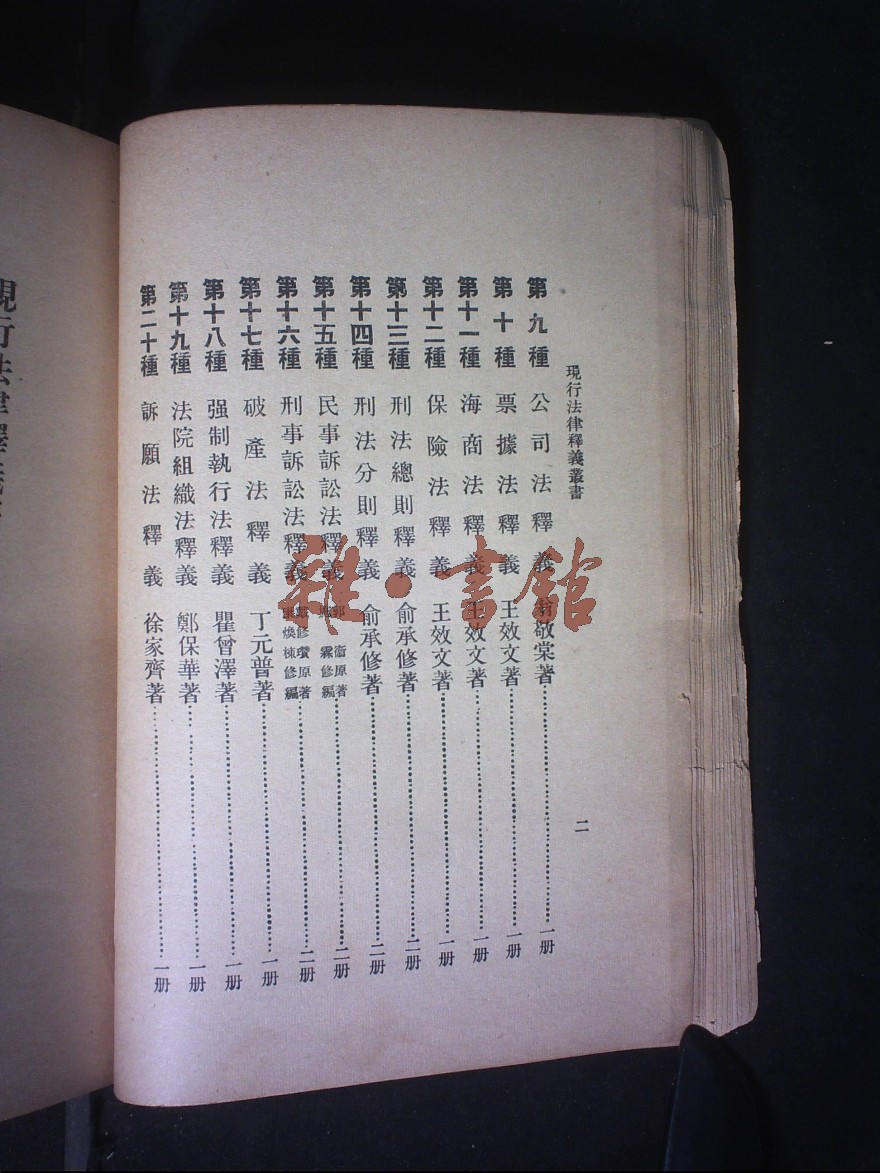 現行法律釋義叢書
二
第九種 公司法釋義 敬棠著 一册
第十種 票據法釋義 王效文著 一册
第十一種 海商法釋義 王效文著 一册
第十二種 保險法釋義 王效文著 一册
第十三種 刑法總則釋義 俞承修著 二册
第十四種 刑法分則釋義 俞承修著 二册
第十五種 民事訴訟法釋義 郭衞原著 霖修編 二册
第十六種 刑事訴訟法釋義 戴修瓚原著 煥棟修編 二册
第十七種 破產法釋義 丁元普著 一册
第十八種 强制執行法釋義 瞿曾澤著 一册
第十九種 法院組織法釋義 鄭保華著 一册
第二十種 訴願法釋義 徐家齊著 一册
雜·書館
現行法律釋義